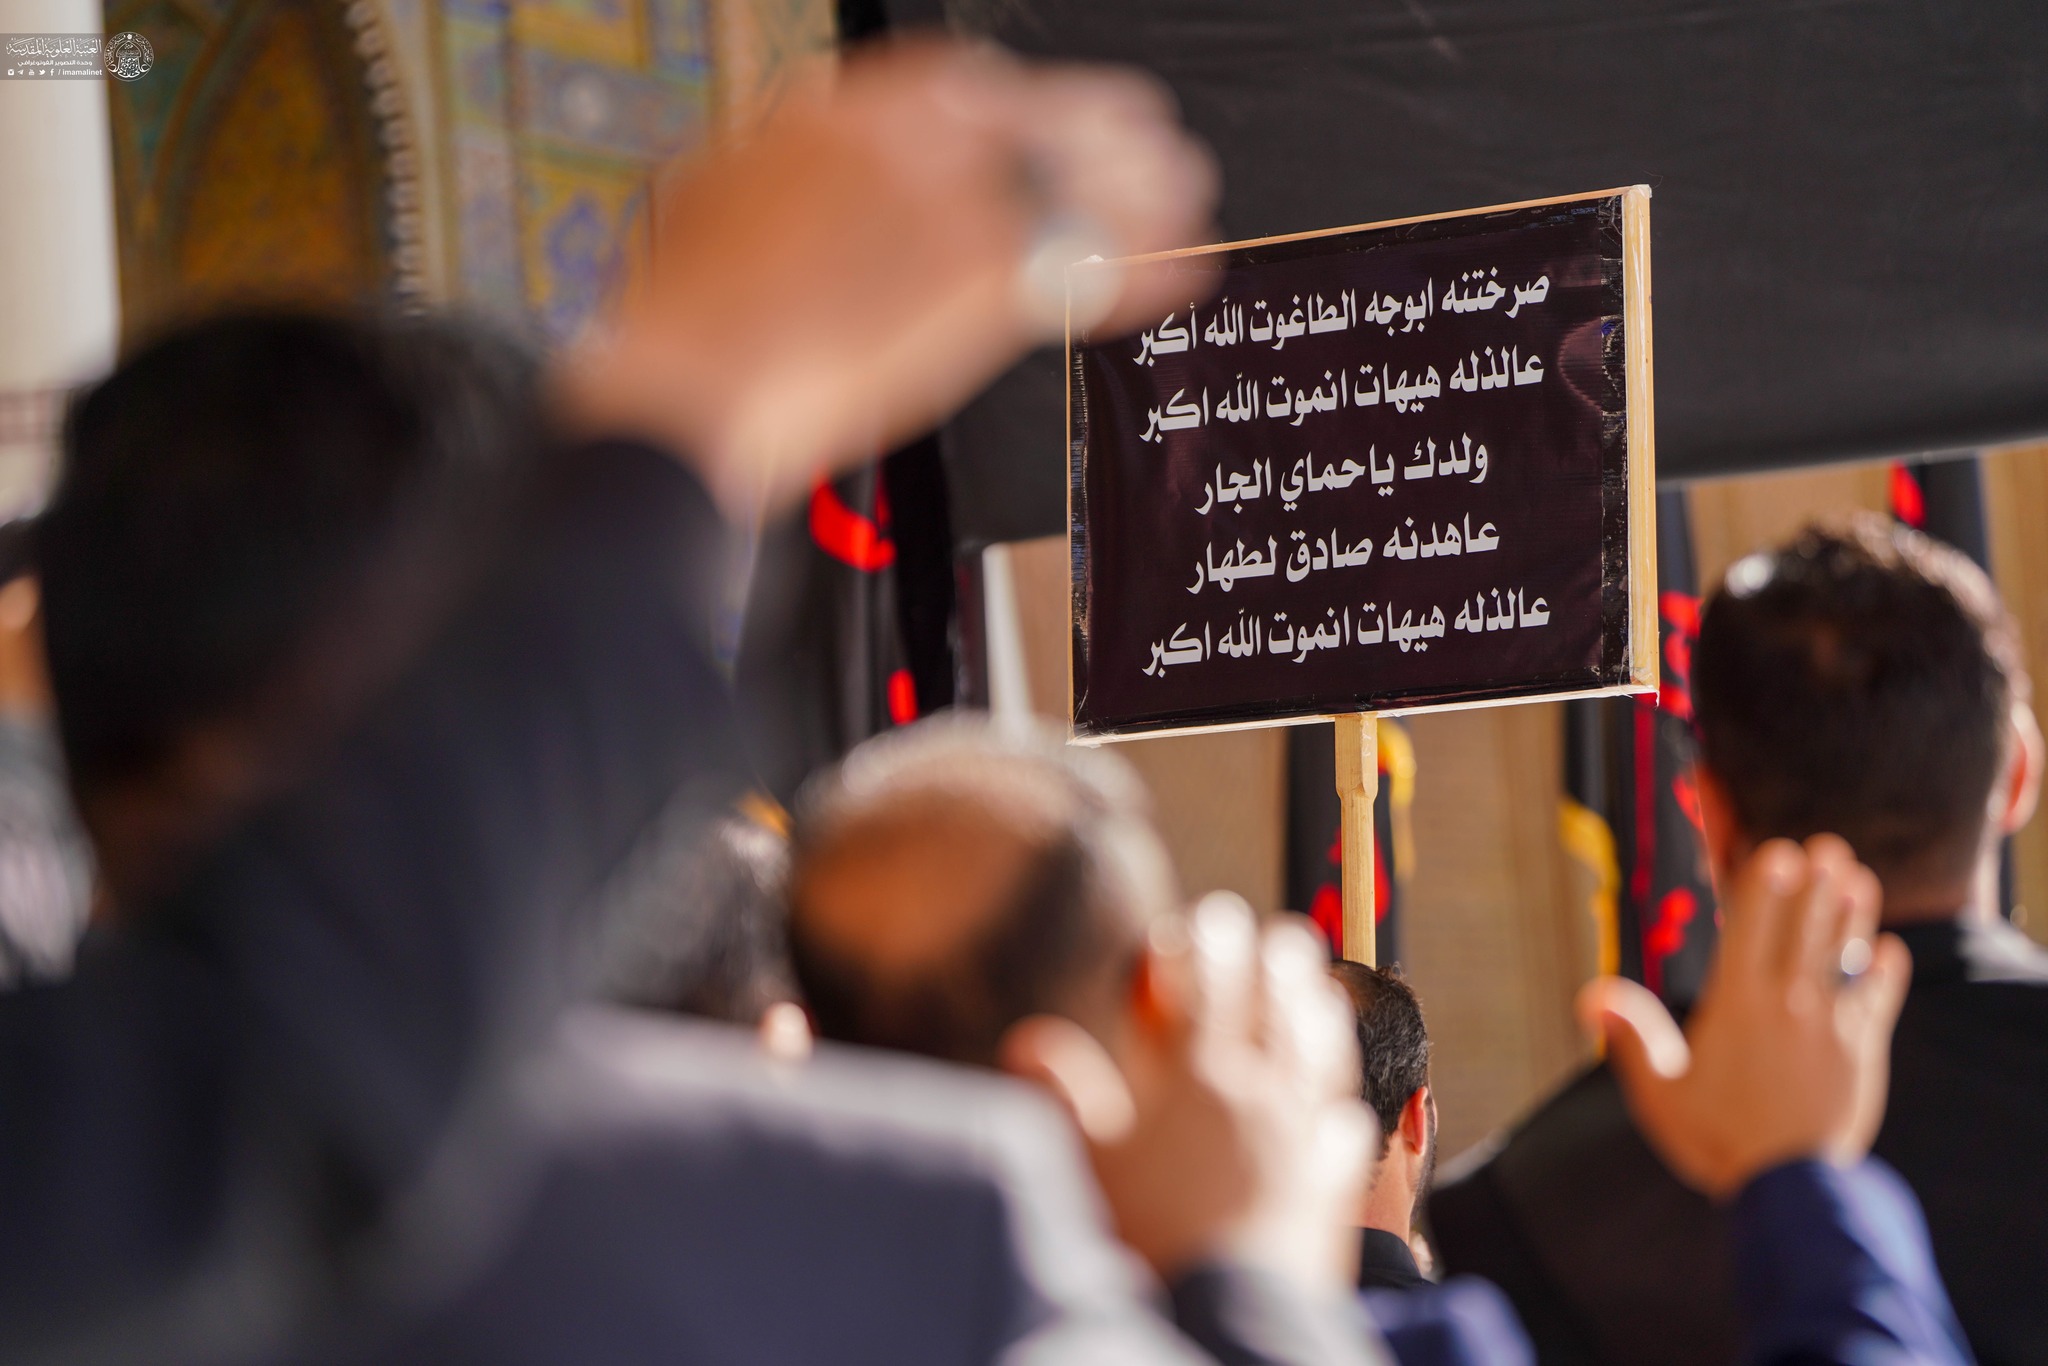 العتبة العلوية المقدسة
وحدة التصوير الفوتوغرافي
/ imamalinet
صرختنه ابوجه الطاغوت الله أكبر
عالذله هيهات انموت الله اكبر
ولدك ياحماي الجار
عاهدنه صادق لطهار
عالذله هيهات انموت الله اكبر